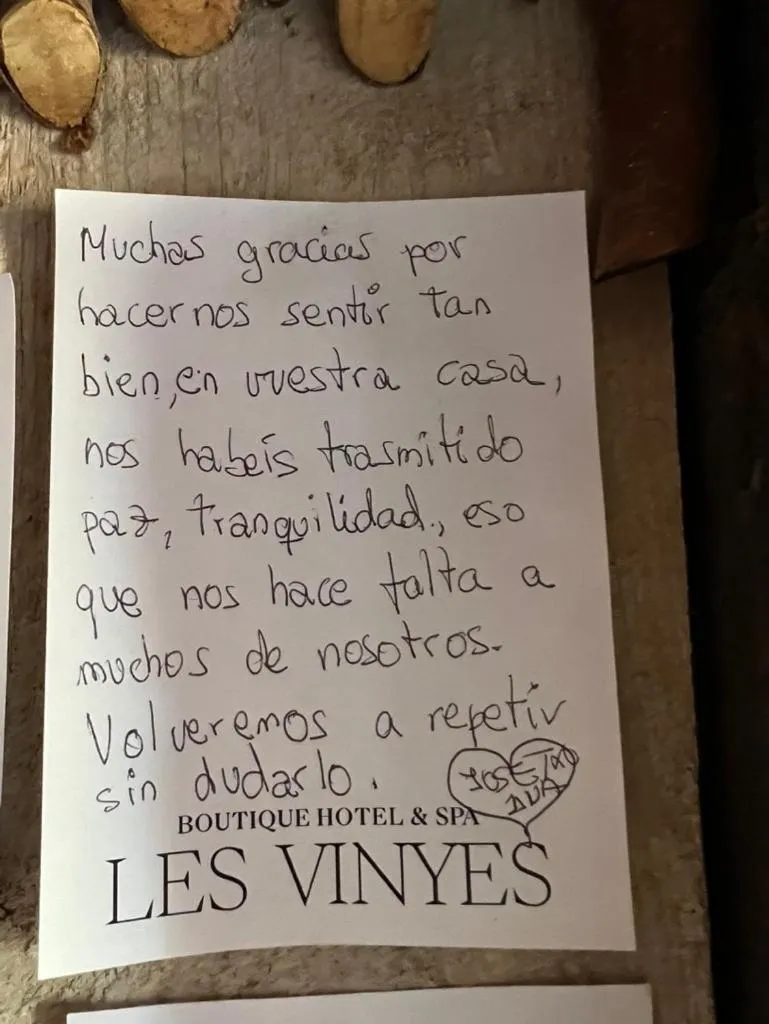 Muchas gracias por
hacernos sentir tan
bien, en vuestra casa,
nos habeis trasmitido
paz, tranquilidad., eso
que nos hace falta a
muchos de nosotros.
Volveremos a repetir
sin dudarlo.
JOSE
BOUTIQUE HOTEL & SPA
LES VINYES